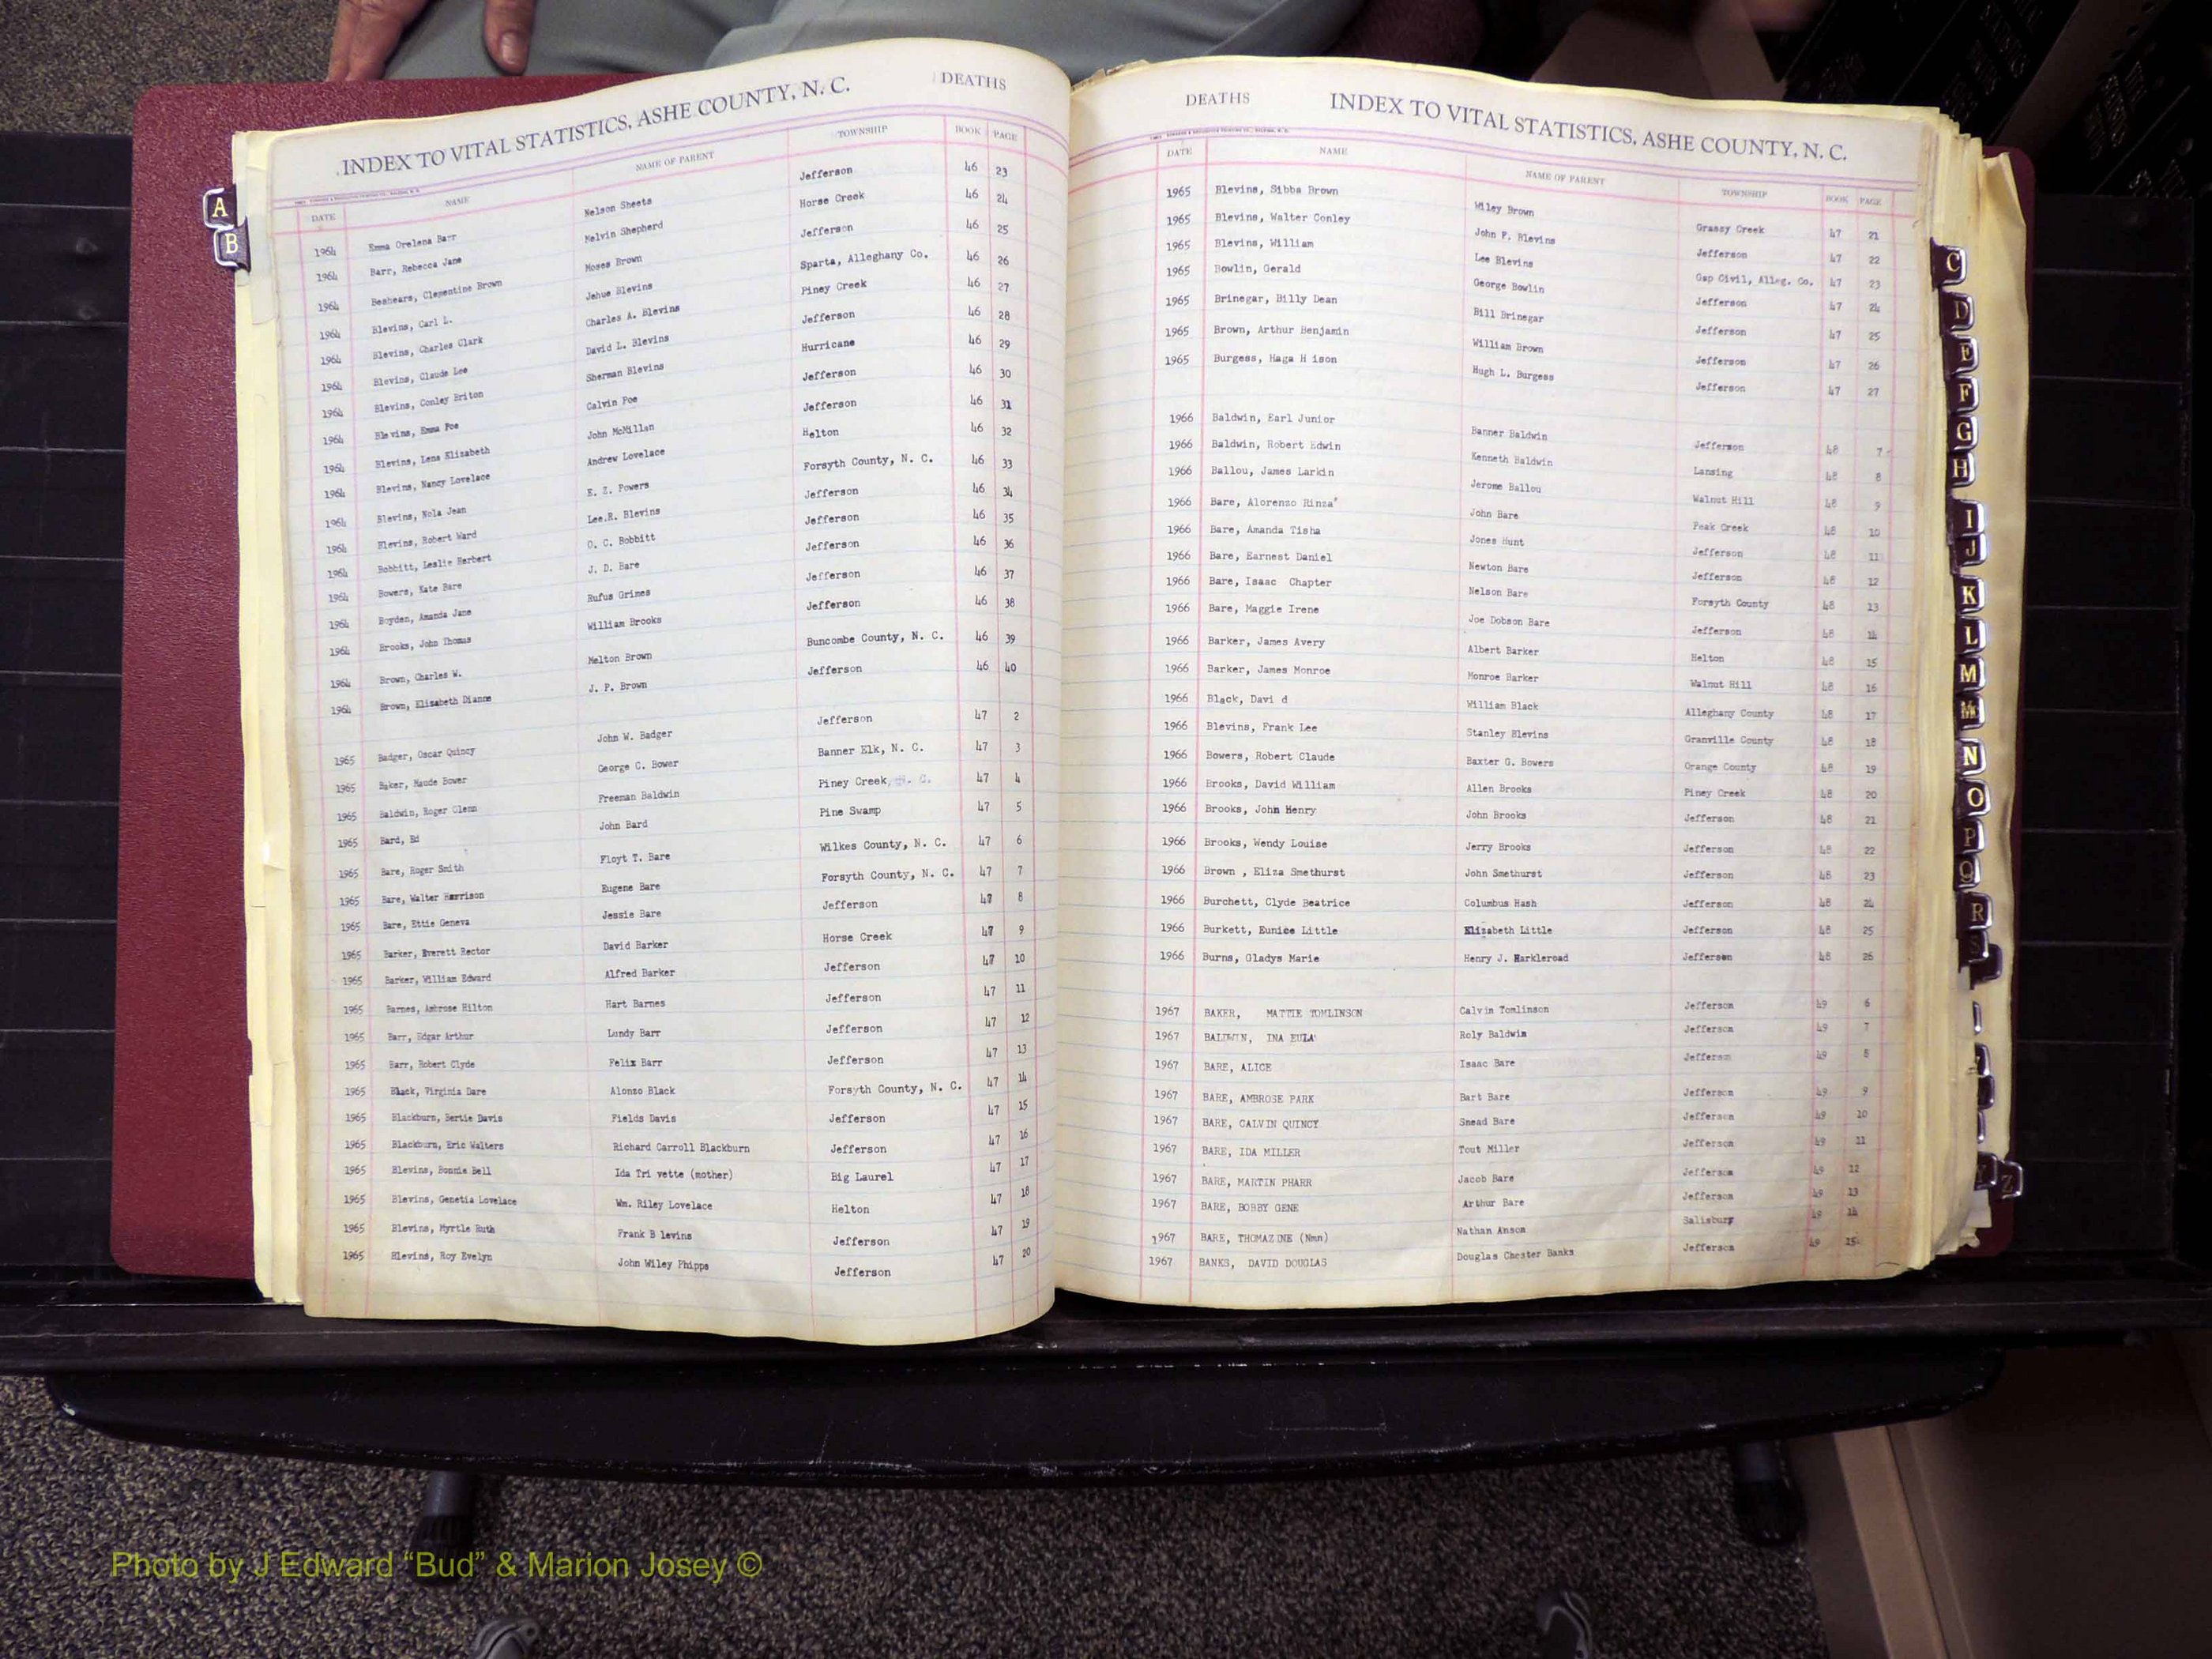 INDEX TO VITAL STATISTICS, ASHE COUNTY, N. C. DEATHS
DATE NAME NAME OF PARENT TOWNSHIP BOOK PAGE
1964 Emma Orelena Barr Nelson Sheets Jefferson 46 23
1964 Barr, Rebecca Jane Melvin Shepherd Horse Creek 46 24
1964 Beshears, Clementine Brown Moses Brown Jefferson 46 25
1964 Blevins, Carl L. Jehue Blevins Sparta, Alleghany Co. 46 26
1964 Blevins, Charles Clark Charles A. Blevins Piney Creek 46 27
1964 Blevins, Claude Lee David L. Blevins Jefferson 46 28
1964 Blevins, Conley Briton Sherman Blevins Hurricane 46 29
1964 Blevins, Emma Poe Calvin Poe Jefferson 46 30
1964 Blevins, Lena Elizabeth John McMillan Jefferson 46 31
1964 Blevins, Nancy Lovelace Andrew Lovelace Helton 46 32
1964 Blevins, Nola Jean E. Z. Powers Forsyth County, N. C. 46 33
1964 Blevins, Robert Ward Lee.R. Blevins Jefferson 46 34
1964 Bobbitt, Leslie Herbert O. C. Bobbitt Jefferson 46 35
1964 Bowers, Kate Bare J. D. Bare Jefferson 46 36
1964 Boyden, Amanda Jane Rufus Grimes Jefferson 46 37
1964 Brooks, John Thomas William Brooks Jefferson 46 38
1964 Brown, Charles W. Melton Brown Buncombe County, N. C. 46 39
1964 Brown, Elizabeth Dianne J. P. Brown Jefferson 46 40
1965 Badger, Oscar Quincy John W. Badger Jefferson 47 2
1965 Baker, Maude Bower George C. Bower Banner Elk, N. C. 47 3
1965 Baldwin, Roger Glenn Freeman Baldwin Piney Creek, N. C. 47 4
1965 Bard, Ed John Bard Pine Swamp 47 5
1965 Bare, Roger Smith Floyt T. Bare Wilkes County, N. C. 47 6
1965 Bare, Walter Harrison Eugene Bare Forsyth County, N. C. 47 7
1965 Bare, Ettie Geneva Jessie Bare Jefferson 47 8
1965 Barker, Everett Rector David Barker Horse Creek 47 9
1965 Barker, William Edward Alfred Barker Jefferson 47 10
1965 Barnes, Ambrose Hilton Hart Barnes Jefferson 47 11
1965 Barr, Edgar Arthur Lundy Barr Jefferson 47 12
1965 Barr, Robert Clyde Felix Barr Jefferson 47 13
1965 Black, Virginia Dare Alonzo Black Forsyth County, N. C. 47 14
1965 Blackburn, Bertie Davis Fields Davis Jefferson 47 15
1965 Blackburn, Eric Walters Richard Carroll Blackburn Jefferson 47 16
1965 Blevins, Bonnie Bell Ida Tri vette (mother) Big Laurel 47 17
1965 Blevins, Genetia Lovelace Wm. Riley Lovelace Helton 47 18
1965 Blevins, Myrtle Ruth Frank B levins Jefferson 47 19
1965 Blevins, Roy Evelyn John Wiley Phipps Jefferson 47 20
DEATHS INDEX TO VITAL STATISTICS, ASHE COUNTY, N. C.
DATE NAME NAME OF PARENT TOWNSHIP BOOK PAGE
1965 Blevins, Sibba Brown Wiley Brown Grassy Creek 47 21
1965 Blevins, Walter Conley John F. Blevins Jefferson 47 22
1965 Blevins, William Lee Blevins Gap Civil, Alleg. Co. 47 23
1965 Bowlin, Gerald George Bowlin Jefferson 47 24
1965 Brinegar, Billy Dean Bill Brinegar Jefferson 47 25
1965 Brown, Arthur Benjamin William Brown Jefferson 47 26
1965 Burgess, Haga H ison Hugh L. Burgess Jefferson 47 27
1966 Baldwin, Earl Junior Banner Baldwin Jefferson 48 7
1966 Baldwin, Robert Edwin Kenneth Baldwin Lansing 48 8
1966 Ballou, James Larkin Jerome Ballou Walnut Hill 48 9
1966 Bare, Alorenzo Rinza' John Bare Peak Creek 48 10
1966 Bare, Amanda Tisha Jones Hunt Jefferson 48 11
1966 Bare, Earnest Daniel Newton Bare Jefferson 48 12
1966 Bare, Isaac Chapter Nelson Bare Forsyth County 48 13
1966 Bare, Maggie Irene Joe Dobson Bare Jefferson 48 14
1966 Barker, James Avery Albert Barker Helton 48 15
1966 Barker, James Monroe Monroe Barker Walnut Hill 48 16
1966 Black, Davi d William Black Alleghany County 48 17
1966 Blevins, Frank Lee Stanley Blevins Granville County 48 18
1966 Bowers, Robert Claude Baxter G. Bowers Orange County 48 19
1966 Brooks, David William Allen Brooks Piney Creek 48 20
1966 Brooks, John Henry John Brooks Jefferson 48 21
1966 Brooks, Wendy Louise Jerry Brooks Jefferson 48 22
1966 Brown , Eliza Smethurst John Smethurst Jefferson 48 23
1966 Burchett, Clyde Beatrice Columbus Hash Jefferson 48 24
1966 Burkett, Eunice Little Elizabeth Little Jefferson 48 25
1966 Burns, Gladys Marie Henry J. Harkleroad Jefferson 48 26
1967 BAKER, MATTIE TOMLINSON Calvin Tomlinson Jefferson 49 6
1967 BALDWIN, INA EULA' Roly Baldwin Jefferson 49 7
1967 BARE, ALICE Isaac Bare Jefferson 49 8
1967 BARE, AMBROSE PARK Bart Bare Jefferson 49 9
1967 BARE, CALVIN QUINCY Snead Bare Jefferson 49 10
1967 BARE, IDA MILLER Tout Miller Jefferson 49 11
1967 BARE, MARTIN PHARR Jacob Bare Jefferson 49 12
1967 BARE, BOBBY GENE Arthur Bare Jefferson 49 13
1967 BARE, THOMAZINE (Nmn) Nathan Anson Salisbury 49 14
1967 BANKS, DAVID DOUGLAS Douglas Chester Banks Jefferson 49 15
A
B
C
D
E
F
G
H
I
J
K
L
M
Mc
N
O
P
Q
R
S
Z
Photo by J Edward “Bud” & Marion Josey ©